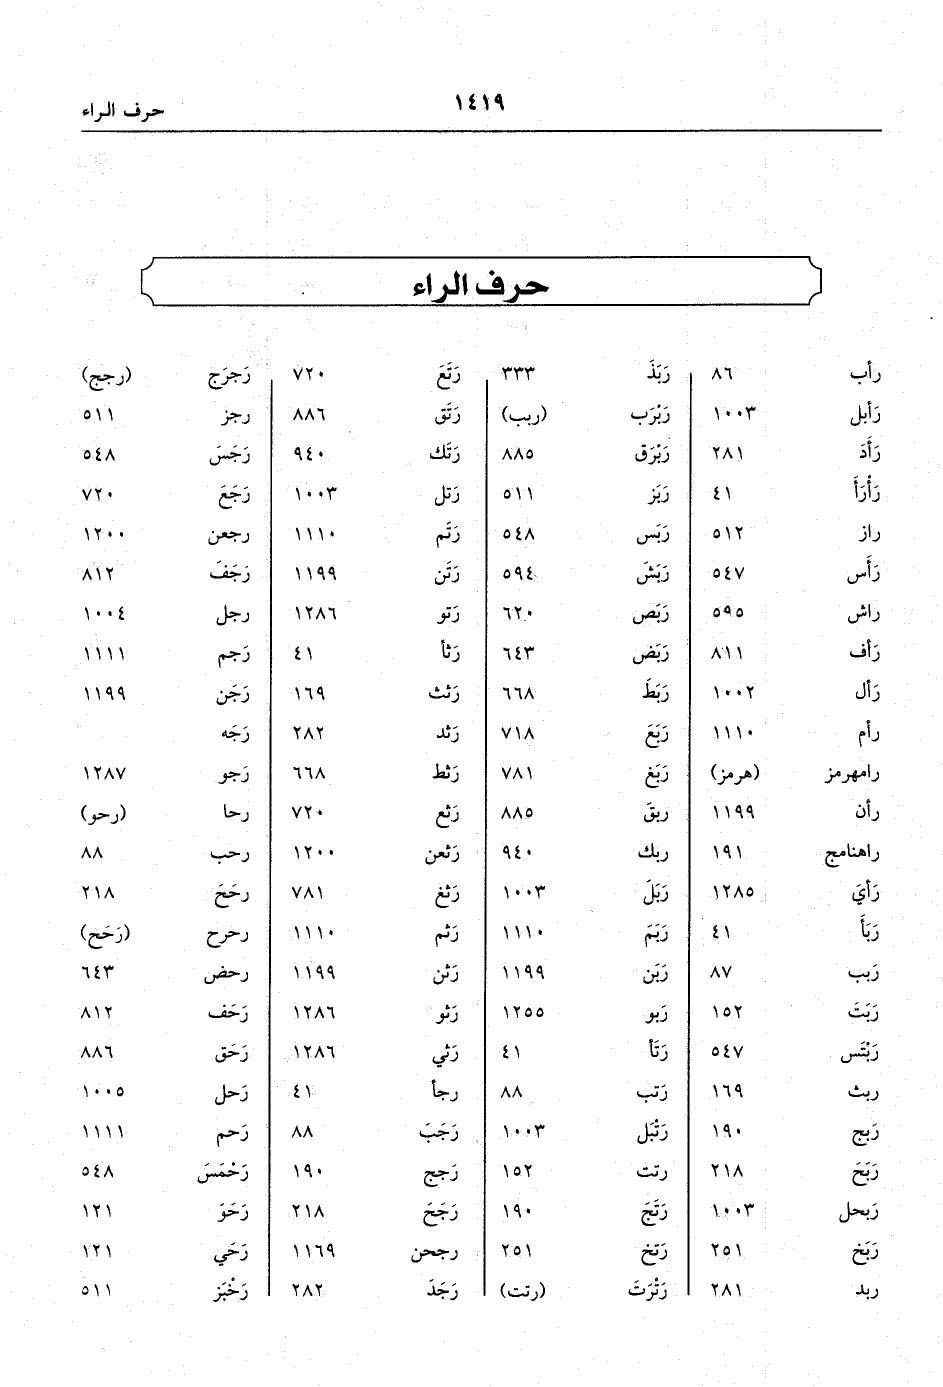 ١٤١٩
حرف الراء
حرف الراء
رأب ٨٦
رَأبل ١٠٠٣
رَأَدَ ٢٨١
رَأْرَأَ ٤١
راز ٥١٢
رَأَس ٥٤٧
راش ٥٩٥
رَأف ٨١١
رَأل ١٠٠٢
رأم ١١١٠
رامهرمز (هرمز)
رأن ١١٩٩
راهنامج ١٩١
رَأيَ ١٢٨٥
رَبَأَ ٤١
رَبب ٨٧
رَبَتَ ١٥٢
رَبْتَس ٥٤٧
ربث ١٦٩
رَبج ١٩٠
رَبَحَ ٢١٨
رَبحل ١٠٠٣
رَبَخ ٢٥١
ربد ٢٨١
رَبَذَ ٣٣٣
رَبْرَب (ربب)
رَبْرَق ٨٨٥
رَبَز ٥١١
رَبَس ٥٤٨
رَبَشَ ٥٩٤
رَبَص ٦٢٠
رَبَض ٦٤٣
رَبَطَ ٦٦٨
رَبَعَ ٧١٨
رَبَغ ٧٨١
ربقَ ٨٨٥
ربك ٩٤٠
رَبَلَ ١٠٠٣
رَبَمَ ١١١٠
رَبَن ١١٩٩
رَبو ١٢٥٥
رَتَأ ٤١
رَتب ٨٨
رَتْبَل ١٠٠٣
رتت ١٥٢
رَتَجَ ١٩٠
رَتخ ٢٥١
رَتْرَتَ (رتت)
رَتَعَ ٧٢٠
رَتَق ٨٨٦
رَتَك ٩٤٠
رَتل ١٠٠٣
رَتَم ١١١٠
رَتَن ١١٩٩
رَتو ١٢٨٦
رَثأ ٤١
رَثث ١٦٩
رَثد ٢٨٢
رَثط ٦٦٨
رَثع ٧٢٠
رَثعن ١٢٠٠
رَثغ ٧٨١
رَثم ١١١٠
رَثن ١١٩٩
رَثو ١٢٨٦
رَثي ١٢٨٦
رجأ ٤١
رَجَبَ ٨٨
رَجج ١٩٠
رَجَحَ ٢١٨
رجحن ١١٦٩
رَجَدَ ٢٨٢
رَجرَج (رجج)
رجز ٥١١
رَجَسَ ٥٤٨
رَجَعَ ٧٢٠
رجعن ١٢٠٠
رَجَفَ ٨١٢
رجل ١٠٠٤
رَجم ١١١١
رَجَن ١١٩٩
رَجَه
رَجو ١٢٨٧
رحا (رحو)
رحب ٨٨
رحَحَ ٢١٨
رحرح (رَحَح)
رحض ٦٤٣
رَحَف ٨١٢
رَحَق ٨٨٦
رَحل ١٠٠٥
رَحم ١١١١
رَحْمَسَ ٥٤٨
رَحَوَ ١٢١
رَحَي ١٢١
رَخْبَز ٥١١